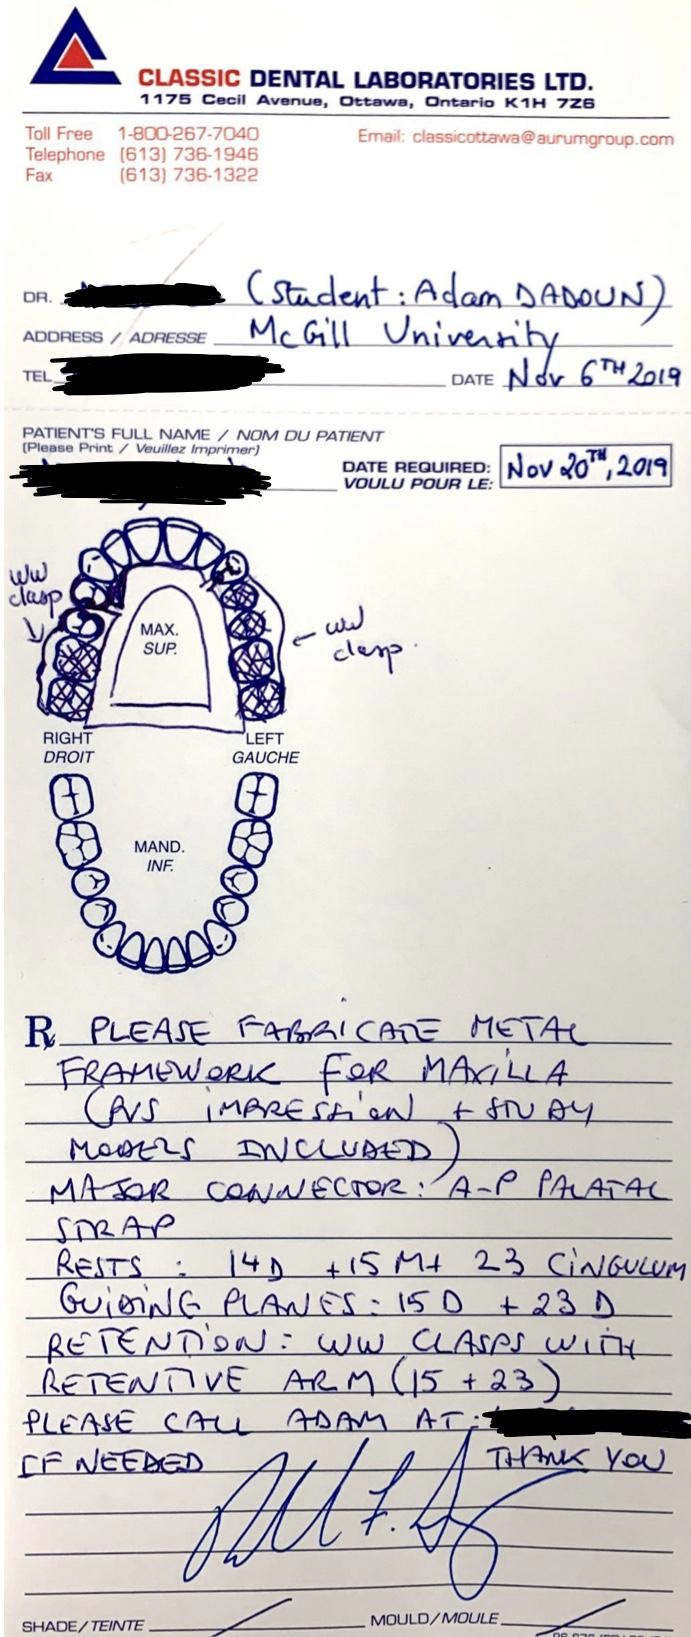 CLASSIC DENTAL LABORATORIES LTD.
1175 Cecil Avenue, Ottawa, Ontario K1H 7Z6
Toll Free 1-800-267-7040
Telephone (613) 736-1946
Fax (613) 736-1322
Email: classicottawa@aurumgroup.com
DR. (Student: Adam DADOUN)
ADDRESS / ADRESSE McGill University
TEL DATE Nov 6TH 2019
PATIENT'S FULL NAME / NOM DU PATIENT
(Please Print / Veuillez Imprimer)
DATE REQUIRED: Nov 20TH, 2019
VOULU POUR LE:
WW
clasp
MAX.
SUP.
WW
clasp.
RIGHT LEFT
DROIT GAUCHE
MAND.
INF.
R PLEASE FABRICATE METAL
FRAMEWORK FOR MAXILLA
(PVS IMPRESSION + STUDY
MODELS INCLUDED)
MAJOR CONNECTOR: A-P PALATAL
STRAP
RESTS: 14D +15M+ 23 CINGULUM
GUIDING PLANES: 15D + 23D
RETENTION: WW CLASPS WITH
RETENTIVE ARM (15 + 23)
PLEASE CALL ADAM AT:
IF NEEDED THANK YOU
SHADE/TEINTE MOULD/MOULE